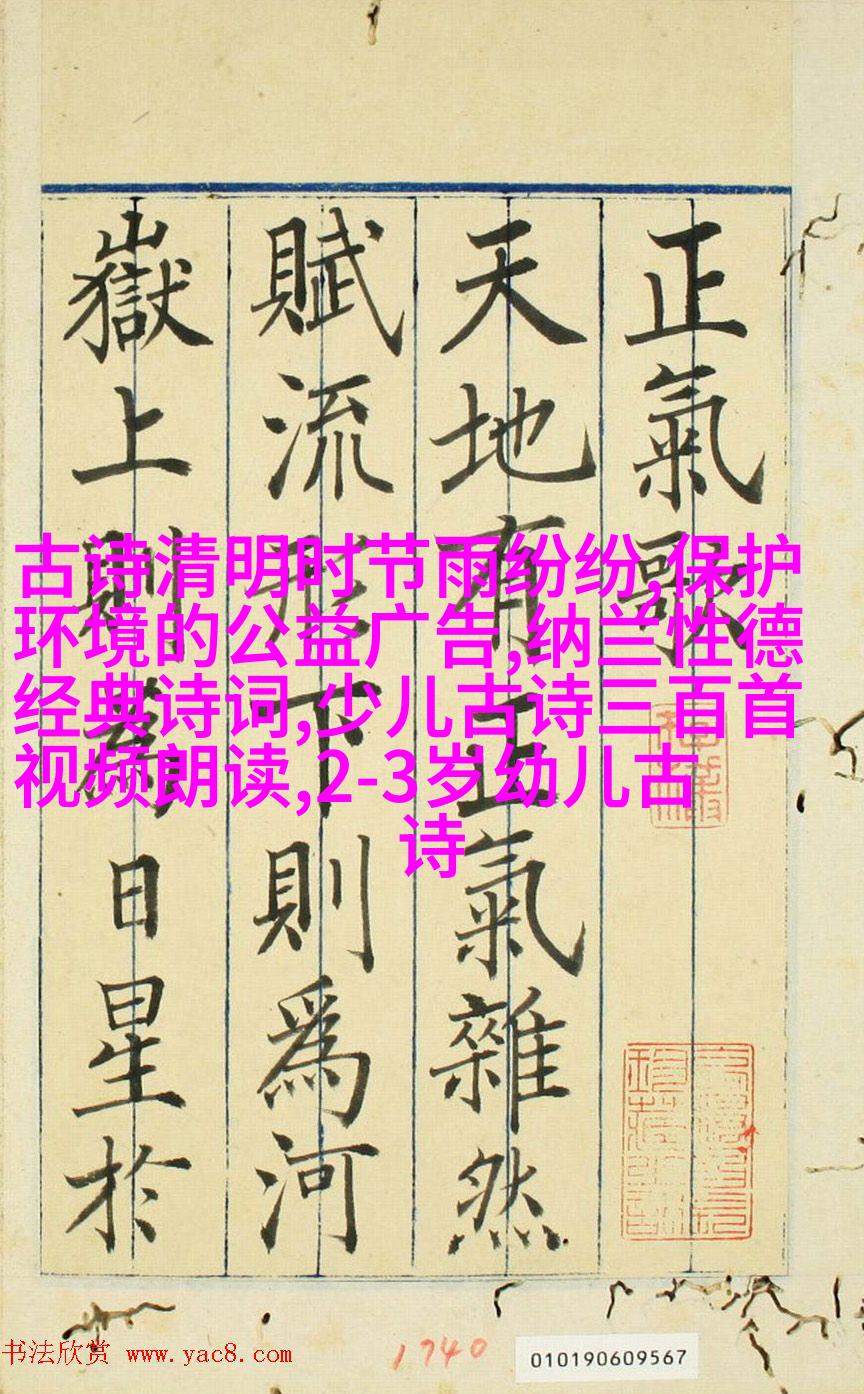 正氣歌
天地有正氣雜然
賦流形下則爲河
嶽上則爲日星於
古诗清明时节雨纷纷,保护
环境的公益广告,纳兰性德
经典诗词,少儿古诗三百首
视频朗读,2-3岁幼儿古
诗
书法欣赏 www.yac8.com
1740
010190609567